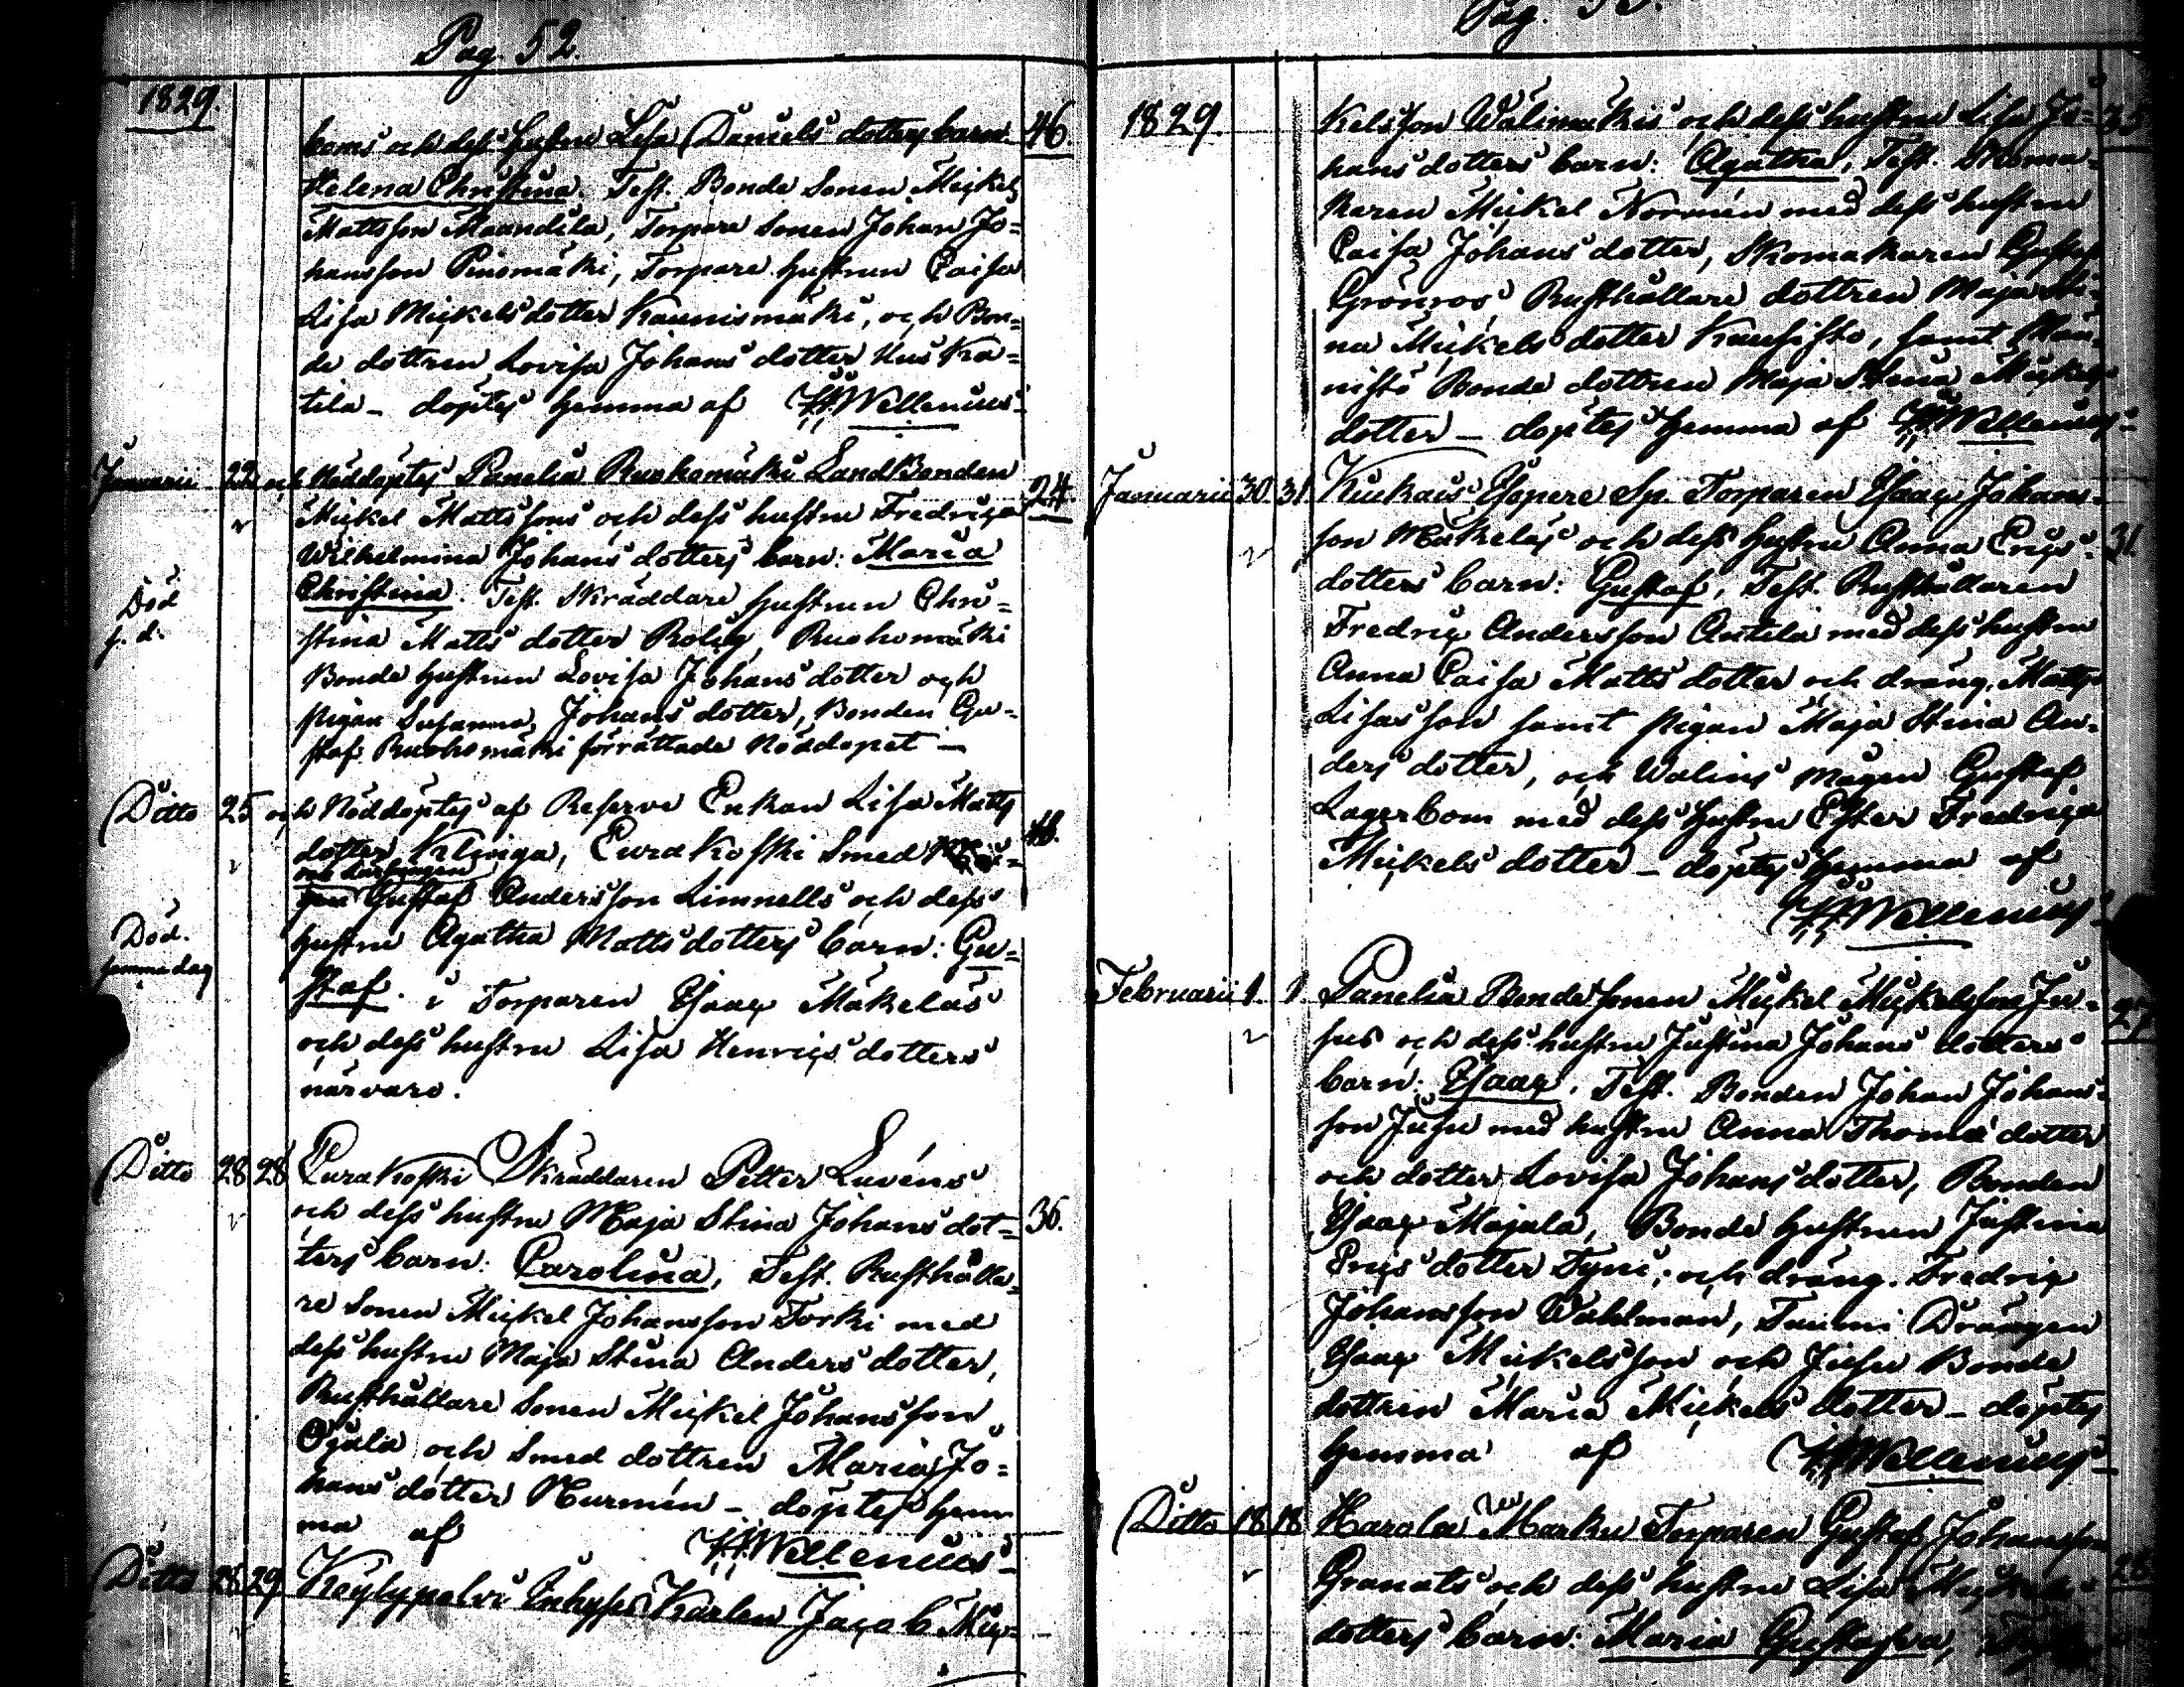 Pag. 52.
1829.
koms och dess hustru Lisa Daniels dotters barn 46.
Helena Christina. Test. Bonde Sonen Mickel
Mattsson Maandila, Torpare Sonen Johan Jo=
hansson Pinomäki, Torpare hustrun Caisa
Lisa Mickels dotter Kaunismäki, och Bon=
de dottren Lovisa Johans dotter Uus Ka=
tila – döptes hemma af Wellenius
Januarii 22 och Nöddöptes Panelia Ruohomäki LandBonden
Mickel Mattssons och dess hustru Fredrica 24.
Wilhelmina Johans dotters barn: Maria
Död Christina. Test. Skräddare hustrun Chri=
s. d. stina Matts dotter Rolig, Ruohomäki
Bonde hustrun Lovisa Johans dotter och
pigan Susanna Johans dotter, Bonden Gu=
staf Ruohomäki förrättade Nöddopet –
Ditto 25 och Nöddöptes af Reserve Enkan Lisa Matts
dotter Klinga, Eurakoski Smed 48.
Gustaf Andersson Limnells och dess
Död. hustru Agatha Matts dotters barn: Gu=
samma dag staf. i Torparen Isaac Mäkeläs
och dess hustru Lisa Henrics dotters
närvaro.
Ditto 28 28 Eurakoski Skräddaren Petter Luréns
och dess hustru Maja Stina Johans dot= 36.
ters barn: Carolina, Test. Rusthålla=
re Sonen Mickel Johansson Torki med
dess hustru Maja Stina Anders dotter,
Rusthållare Sonen Mickel Johansson
Ojala och Smed dottren Maria Jo=
hans dotter Nurmén – döptes hem
ma af Wellenius
Ditto 28 29 Köylypolvi Inhyses Karlen Jacob Mic=
Pag.
1829.
kelsson Wälimäkis och dess hustru Lisa Jo= 35
hans dotters barn: Agatha, Test. Skoma=
karen Mickel Normén med dess hustru
Caisa Johans dotter, Skomakaren Gustaf
Grönroos, Rusthållare dottren Maja Sti=
na Mickels dotter Kausisto, samt Män=
nistö Bonde dottren Maja Stina Mickels
dotter – döptes hemma af Wellenius
Januarii 30. 31. Kiukais Isopere Sp. Torparen Isaac Johans=
son Mäkeläs och dess hustru Anna Erics= 31.
dotters barn: Gustaf, Test. Rusthållaren
Fredric Andersson Antila med dess hustru
Anna Caisa Matts dotter och dräng. Matts
Lisasson samt pigan Maja Stina An=
ders dotter, och Walins mågen Gustaf
Lagerbom med dess hustru Ester Fredrica
Mickels dotter – döptes hemma af
Wellenius
Februarii 1. 1. Panelia Bonde sonen Mickel Mickelsson Ju= 27
sus och dess hustru Justina Johans dotters
barn: Isaac. Test. Bonden Johan Johans=
son Jusu med hustru Anna Thomæ dotter
och dotter Lovisa Johans dotter, Bonden
Isaac Majala, Bonde hustrun Justina
Erics dotter Tyni, och dräng. Fredric
Johansson Wahlman, Tuumi Drängen
Isaac Mickelsson och Jusu Bonde
dottren Maria Mickels dotter – döptes
hemma af Wellenius
Ditto 18 18 Harola Marku Torparen Gustaf Johansson
Granats och dess hustru Lisa 28.
dotters barn: Maria Gustafva,